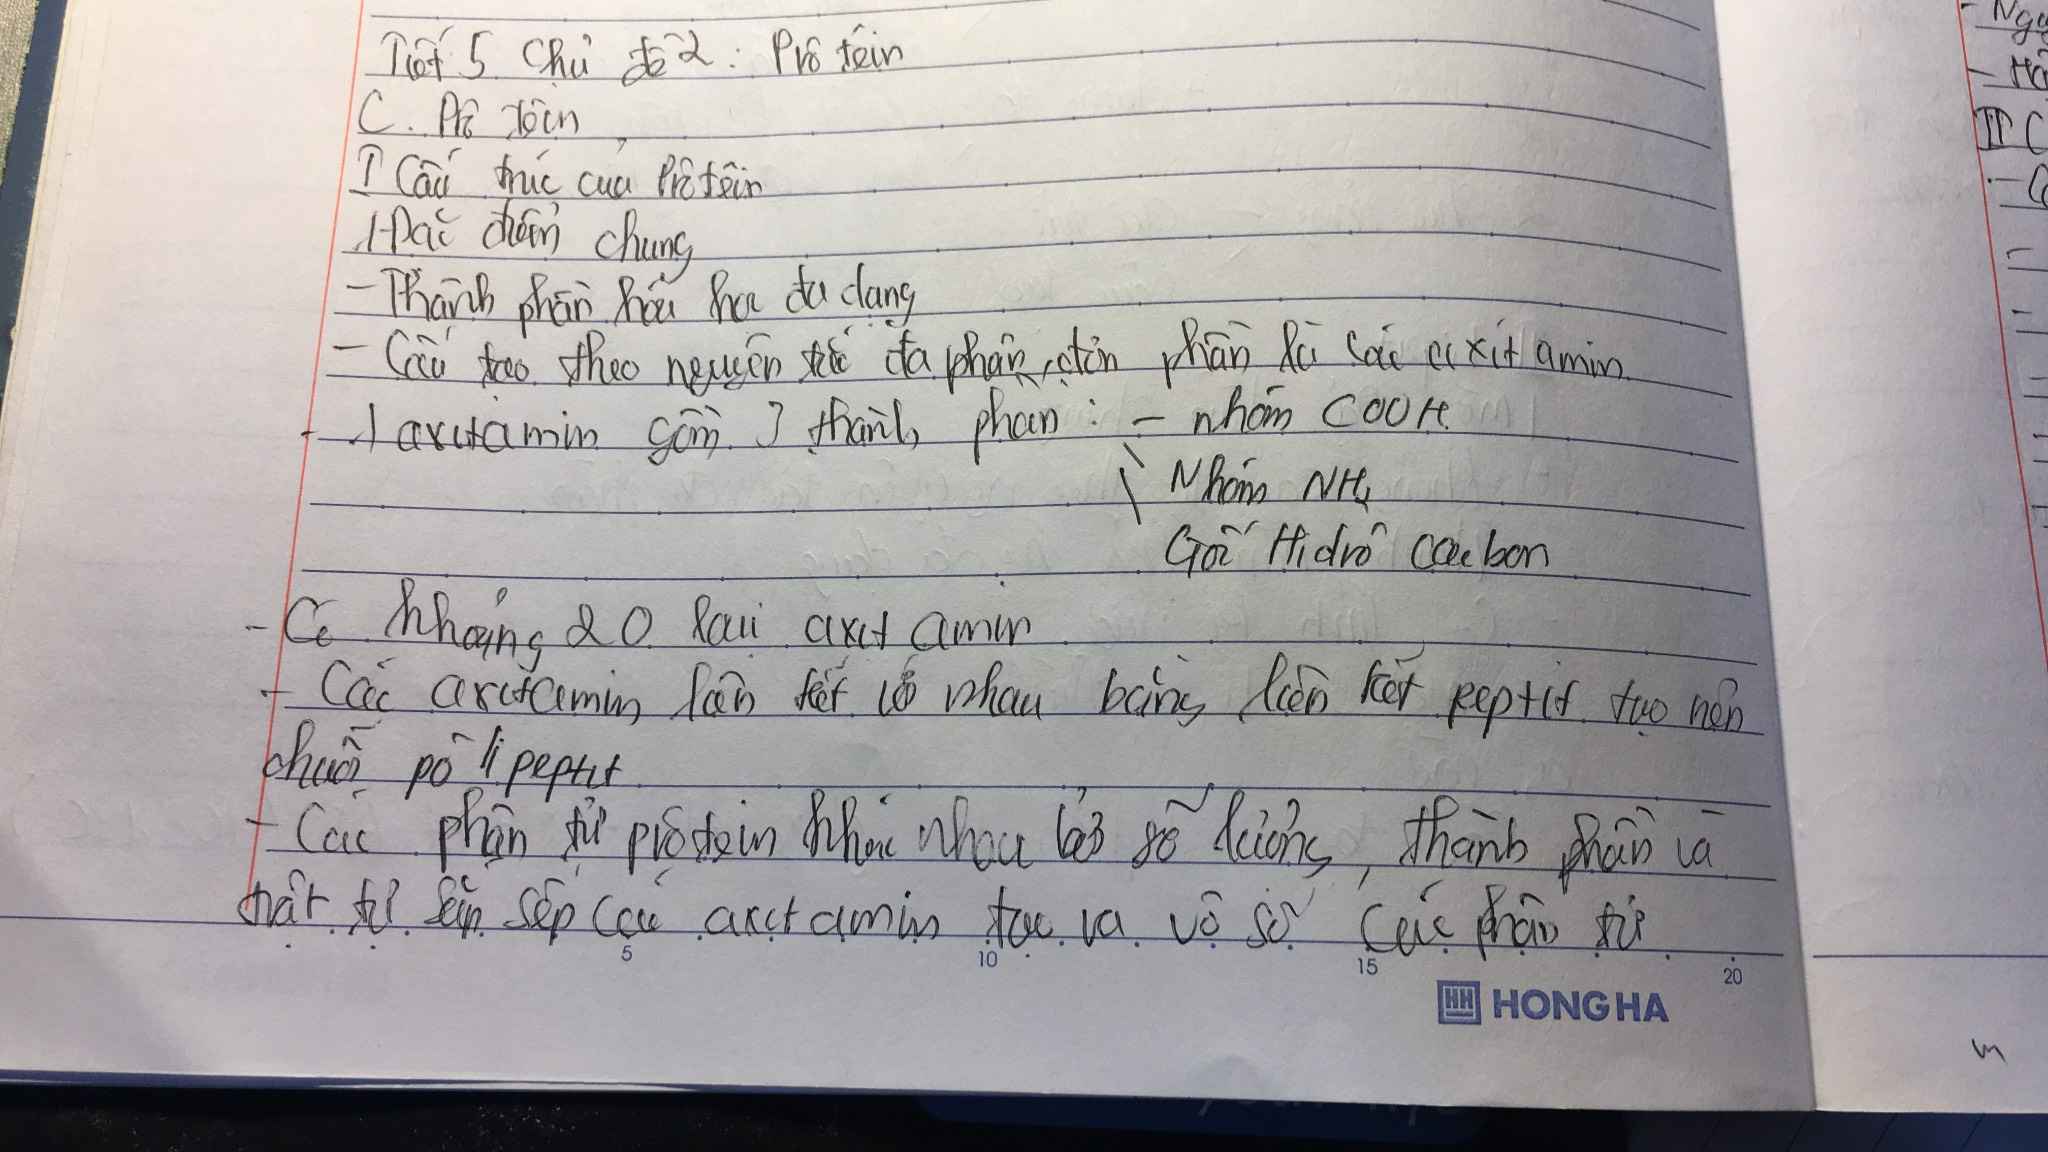 Tiết 5 Chủ đề 2: Prôtêin
C. Prôtêin
I Cấu trúc của Prôtêin
1. Đặc điểm chung
- Thành phần hóa học đa dạng
- Cấu tạo theo nguyên tắc đa phân, đơn phân là các axit amin
+ 1 axitamin gồm 3 thành phần: - nhóm COOH
Nhóm NH2
Gốc Hidrô cacbon
- Có khoảng 20 loại axit amin
- Các axitamin liên kết với nhau bằng liên kết peptit tạo nên
chuỗi pôlipeptit
- Các phân tử prôtein khác nhau bởi số lượng, thành phần và
trật tự sắp sếp các axit amin tạo ra vô số các phân tử
5 10 15 20
HH HONG HA
II C